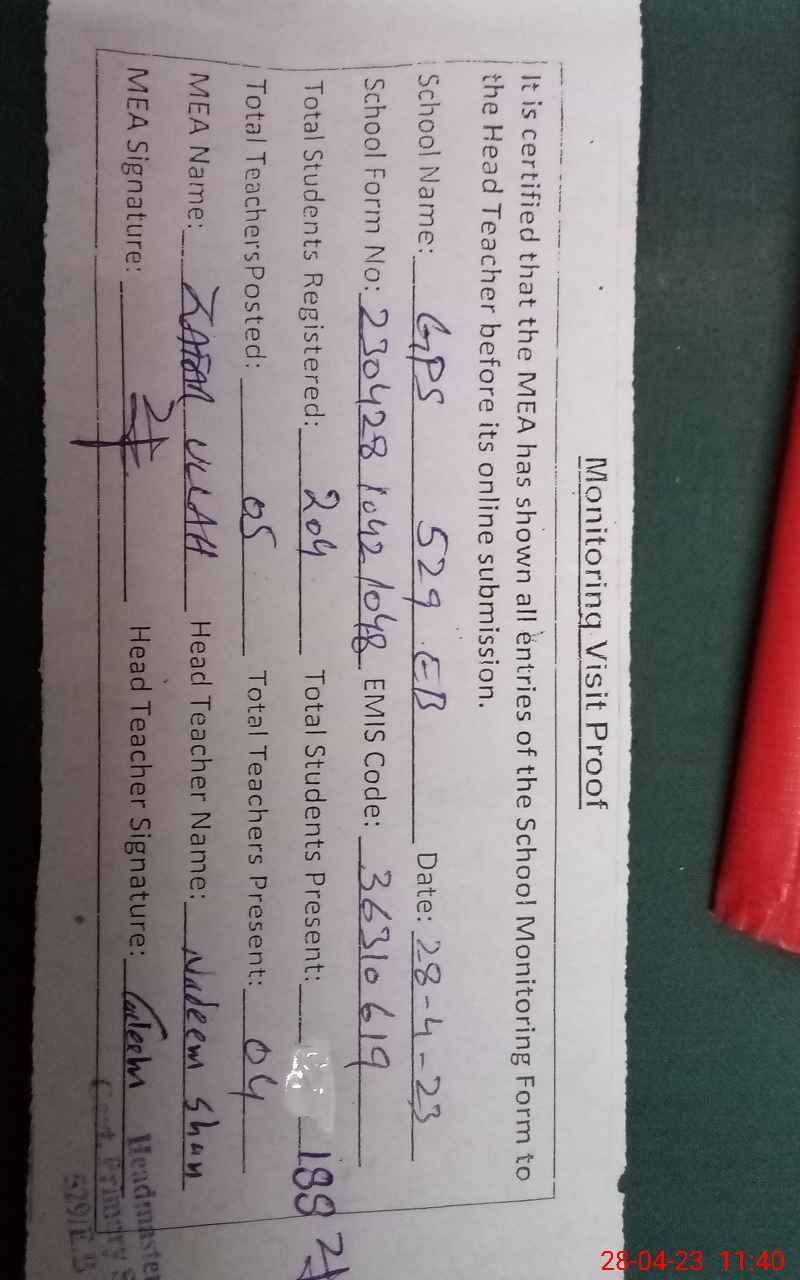 Monitoring Visit Proof
It is certified that the MEA has shown all entries of the School Monitoring Form to
the Head Teacher before its online submission.
School Name: GPS 529 EB Date: 28-4-23
School Form No: 230428 1042 1048 EMIS Code: 36310619
Total Students Registered: 204 Total Students Present: 188
Total TeachersPosted: 05 Total Teachers Present: 04
MEA Name: ULLAH Head Teacher Name: Nadeem Shan
MEA Signature: Head Teacher Signature: Nadeem
Headmaster
Govt. Primary S
529/E.B
28-04-23 11:40